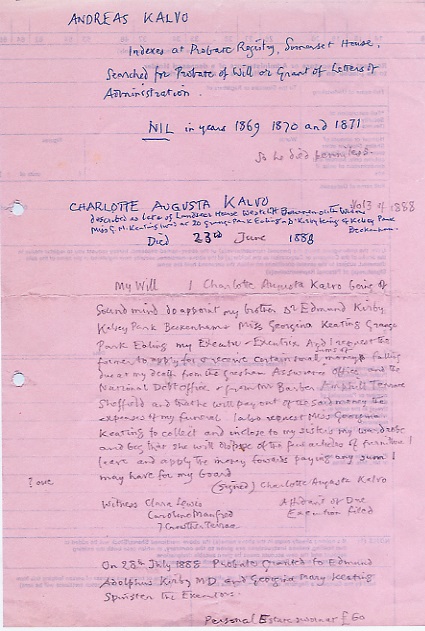 ANDREAS KALVO
Indexes at Probate Registry, Somerset House,
Searched for Probate of Will or Grant of Letters of
Administration.
NIL in years 1869 1870 and 1871
So he died penniless.
Vol 3 of 1888
CHARLOTTE AUGUSTA KALVO
described as late of Landseer House Westcliff Bournemouth Widow
Miss G. M. Keating lives at 20 Grange Park Ealing - Dr Kirby King of Kelsey Park
Beckenham
Died 23rd June 1888
My Will I Charlotte Augusta Kalvo being of
sound mind do appoint my brother Dr Edmund Kirby
Kelsey Park Beckenham & Miss Georgina Keating Grange
Park Ealing my Executor & Executrix And I request the
former to apply for & receive certain sums of money falling
due at my death from the Gresham Assurance office and the
National Debt Office & from Mr Barber Terrace
Sheffield and that he will pay out of the said money the
expenses of my funeral I also request Miss Georgina
Keating to collect and inclose to my sisters my wardrobe
and beg that she will dispose of the few articles of furniture I
leave and apply the money towards paying any sum I
? owe may have for my board
(Signed) Charlotte Augusta Kalvo
Witness Clara Lewis
Caroline Manfred
7 Terrace
Affidavit of Due
Execution filed
On 28th July 1888 Probate Granted to Edmund
Adolphus Kirby MD and Georgina Mary Keating
Spinster the Executors.
Personal Estate £60